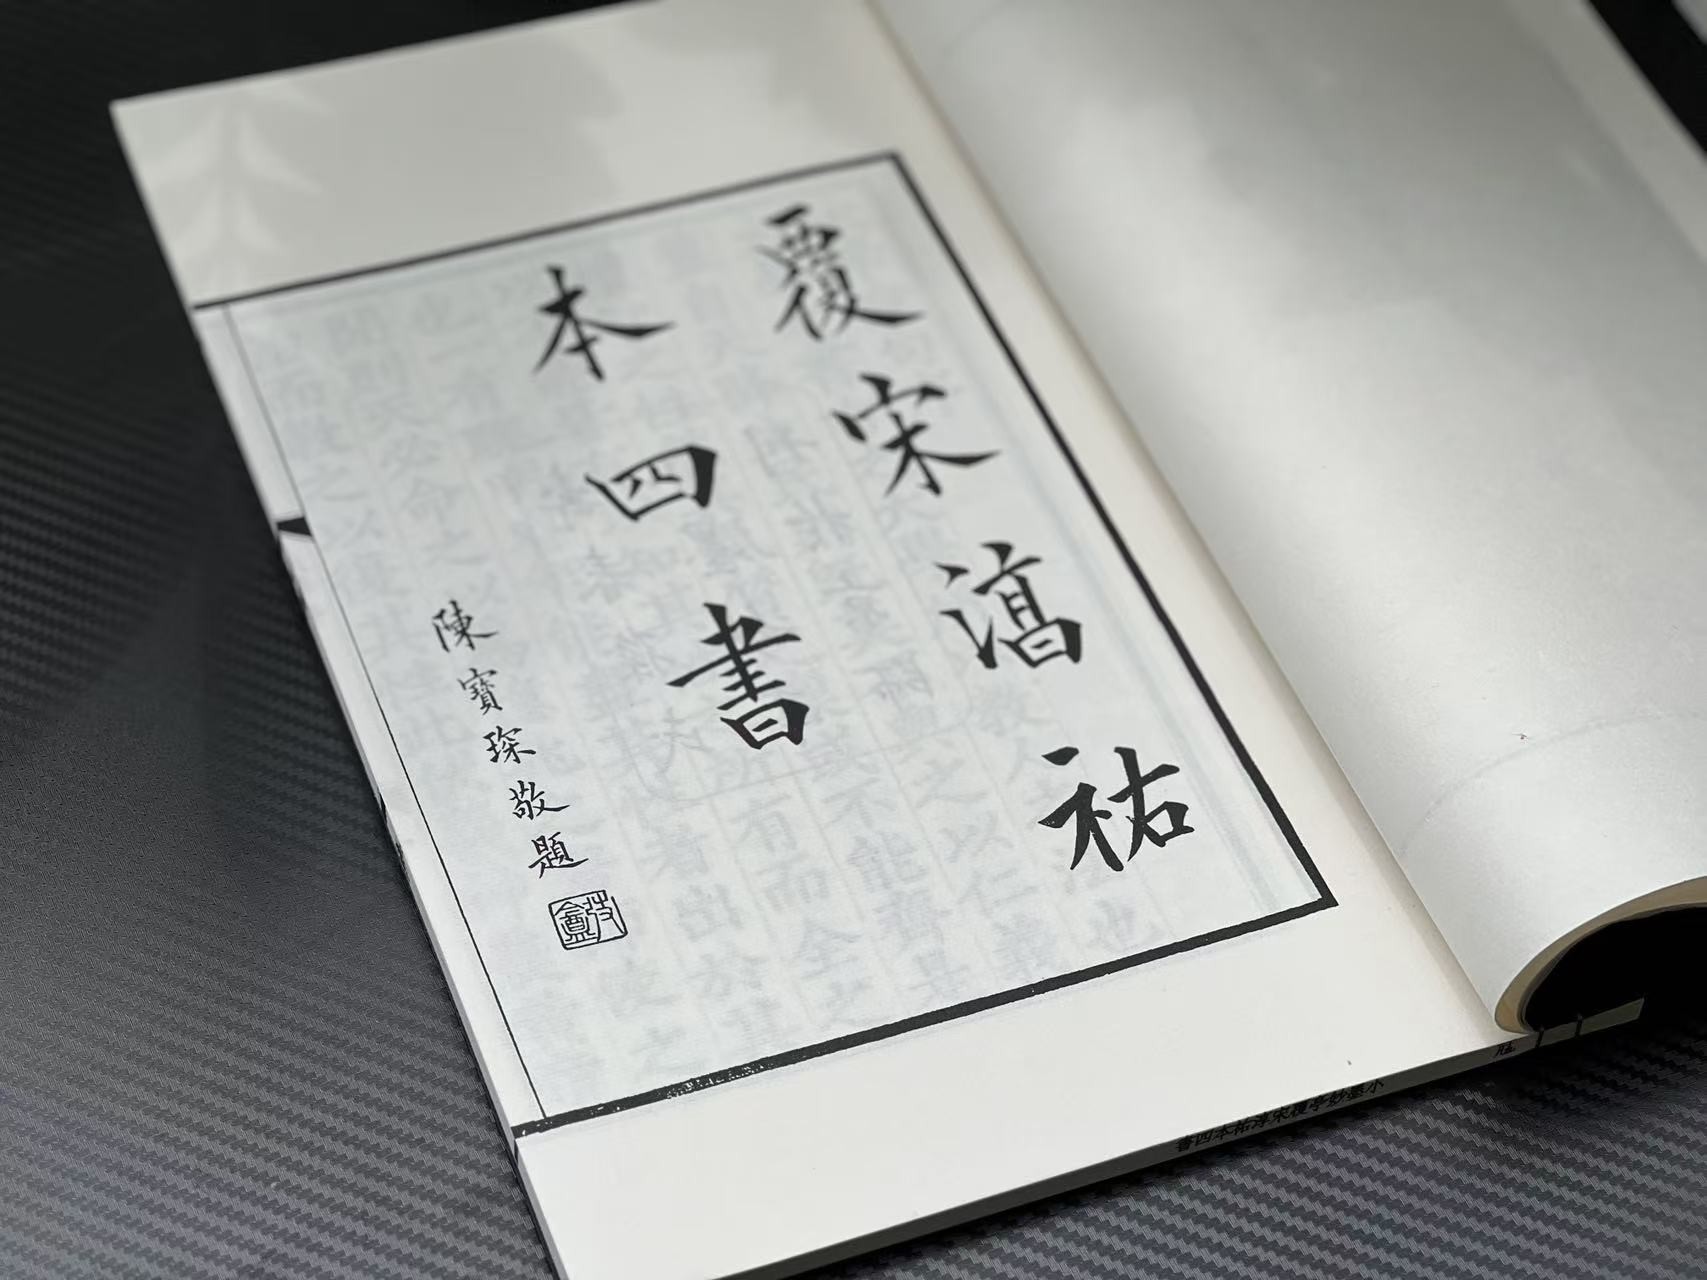 覆宋淳祐
本四書
陳寶琛敬題
弢盦
小墨妙亭覆宋淳祐本四書